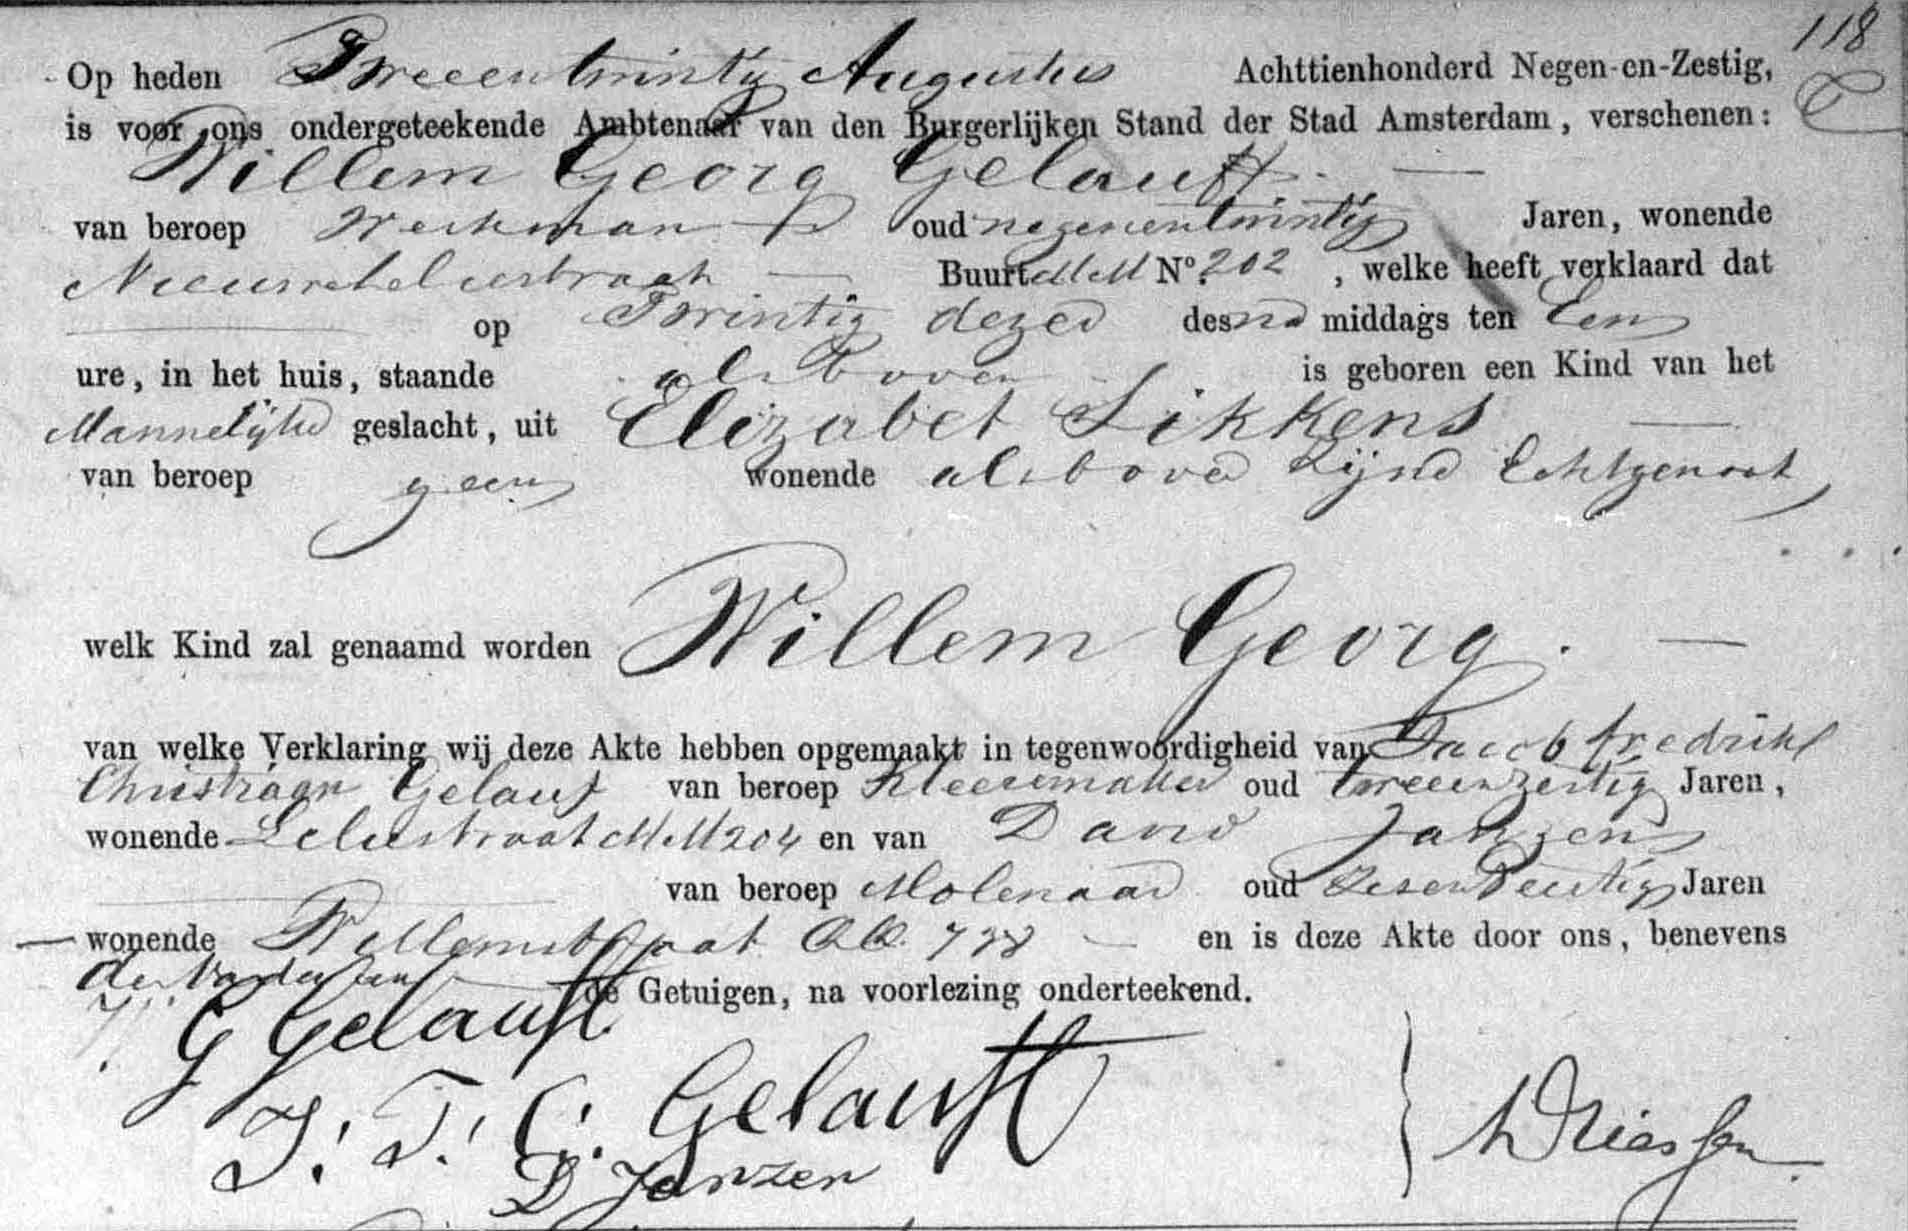 118
Op heden Tweeentwintig Augustus Achttienhonderd Negen-en-Zestig,
is voor ons ondergeteekende Ambtenaar van den Burgerlijken Stand der Stad Amsterdam, verschenen:
Willem Georg Gelauff. —
van beroep Werkman oud negenentwintig Jaren, wonende
Nieuweleliestraat — Buurt MM No. 202, welke heeft verklaard dat
op Twintig dezer des na middags ten Een
ure, in het huis, staande alsboven is geboren een Kind van het
Mannelijke geslacht, uit Elizabet Sikkens —
van beroep geen wonende alsboven zijne Echtgenoot
welk Kind zal genaamd worden Willem Georg. —
van welke Verklaring wij deze Akte hebben opgemaakt in tegenwoordigheid van Jacob fredrikl
Christiaan Gelauf van beroep Kleermaker oud tweeenzestig Jaren,
wonende Leliestraat MM 204 en van David Janzen
van beroep Molenaar oud Zesendertig Jaren
— wonende Willemstraat 738 — en is deze Akte door ons, benevens
de Vader en de Getuigen, na voorlezing onderteekend.
G Gelauff.
J. F. C. Gelauff
D Janzen